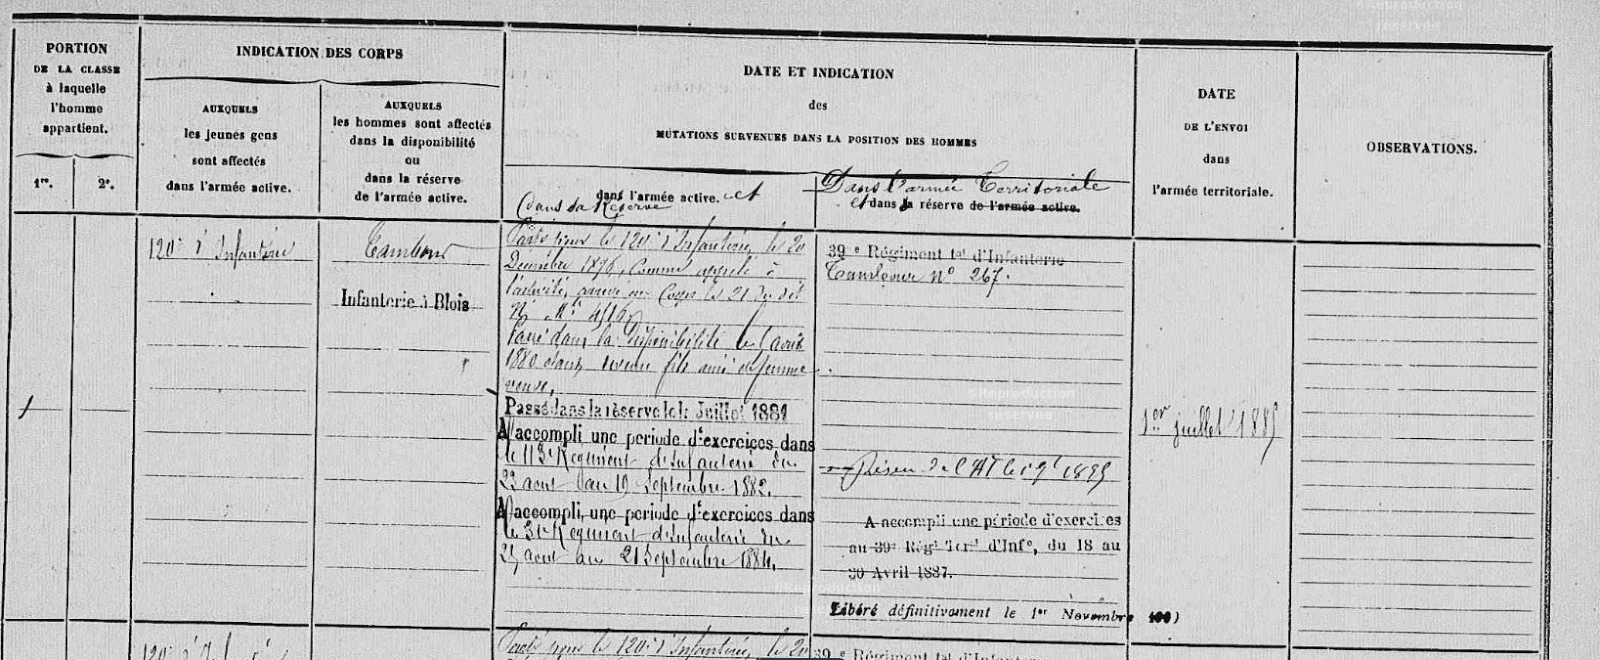 Reproduction
réservée
PORTION
DE LA CLASSE
à laquelle
l'homme
appartient.
1re.
2e.
INDICATION DES CORPS
AUXQUELS
les jeunes gens
sont affectés
dans l'armée active.
AUXQUELS
les hommes sont affectés
dans la disponibilité
ou
dans la réserve
de l'armée active.
DATE ET INDICATION
des
MUTATIONS SURVENUES DANS LA POSITION DES HOMMES
dans l'armée active. et
dans sa Réserve
Dans l'armée Territoriale
et dans sa réserve de l'armée active.
DATE
DE L'ENVOI
dans
l'armée territoriale.
OBSERVATIONS.
1
120e d'Infanterie
Tambour
Infanterie à Blois
Parti pour le 120e d'Infanterie, le 20
Décembre 1876, comme appelé à
l'activité, arrivé au Corps le 21 du dit
No Mle 4516
Passé dans la disponibilité le août
1880 étant devenu fils aîné de femme
veuve.
Passé dans la réserve le 1r Juillet 1881
A accompli une période d'exercices dans
le 113e Régiment d'Infanterie du
22 aout au 19 Septembre 1882.
A accompli une période d'exercices dans
le 31e Régiment d'Infanterie du
25 aout au 21 Septembre 1884.
39e Régiment tal d'Infanterie
Tambour No 267.
Réserve de l'AT le 1895
A accompli une période d'exercices
au 39e Régt Terrl d'Infe, du 18 au
30 Avril 1887.
Libéré définitivement le 1er Novembre
1er juillet 1885
120e d'Infanterie
Parti pour le 120e d'Infanterie, le 20
39e Régiment tal d'Infanterie